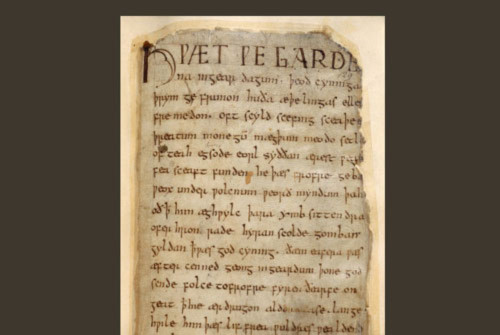 HǷÆT ǷE GARDE
na ingear dagum. þeod cyninga
þrym ge frunon huða æþelingas elle
fre medon. oft scyld scefing sceaþe
þreatum monegū mægþum meodo setl
of teah egsode eorl syððan ærest ƿea
fea sceaft funden he þæs frofre geba
ƿeox under ƿolcnum ƿeorð myndum þah
oð ꝥ him æghƿylc þara ymb sittendra
ofer hron rade hyran scolde gomban
gyldan ꝥ ƿæs god cyning. ðæm eafera ƿæs
æfter cenned geong in geardum þone god
sende folce tofrofre fyren ðearfe on
geat ꝥ hie ær drugon aldor ase. lange
hƿile him þæs lif frea ƿuldres ƿealdend